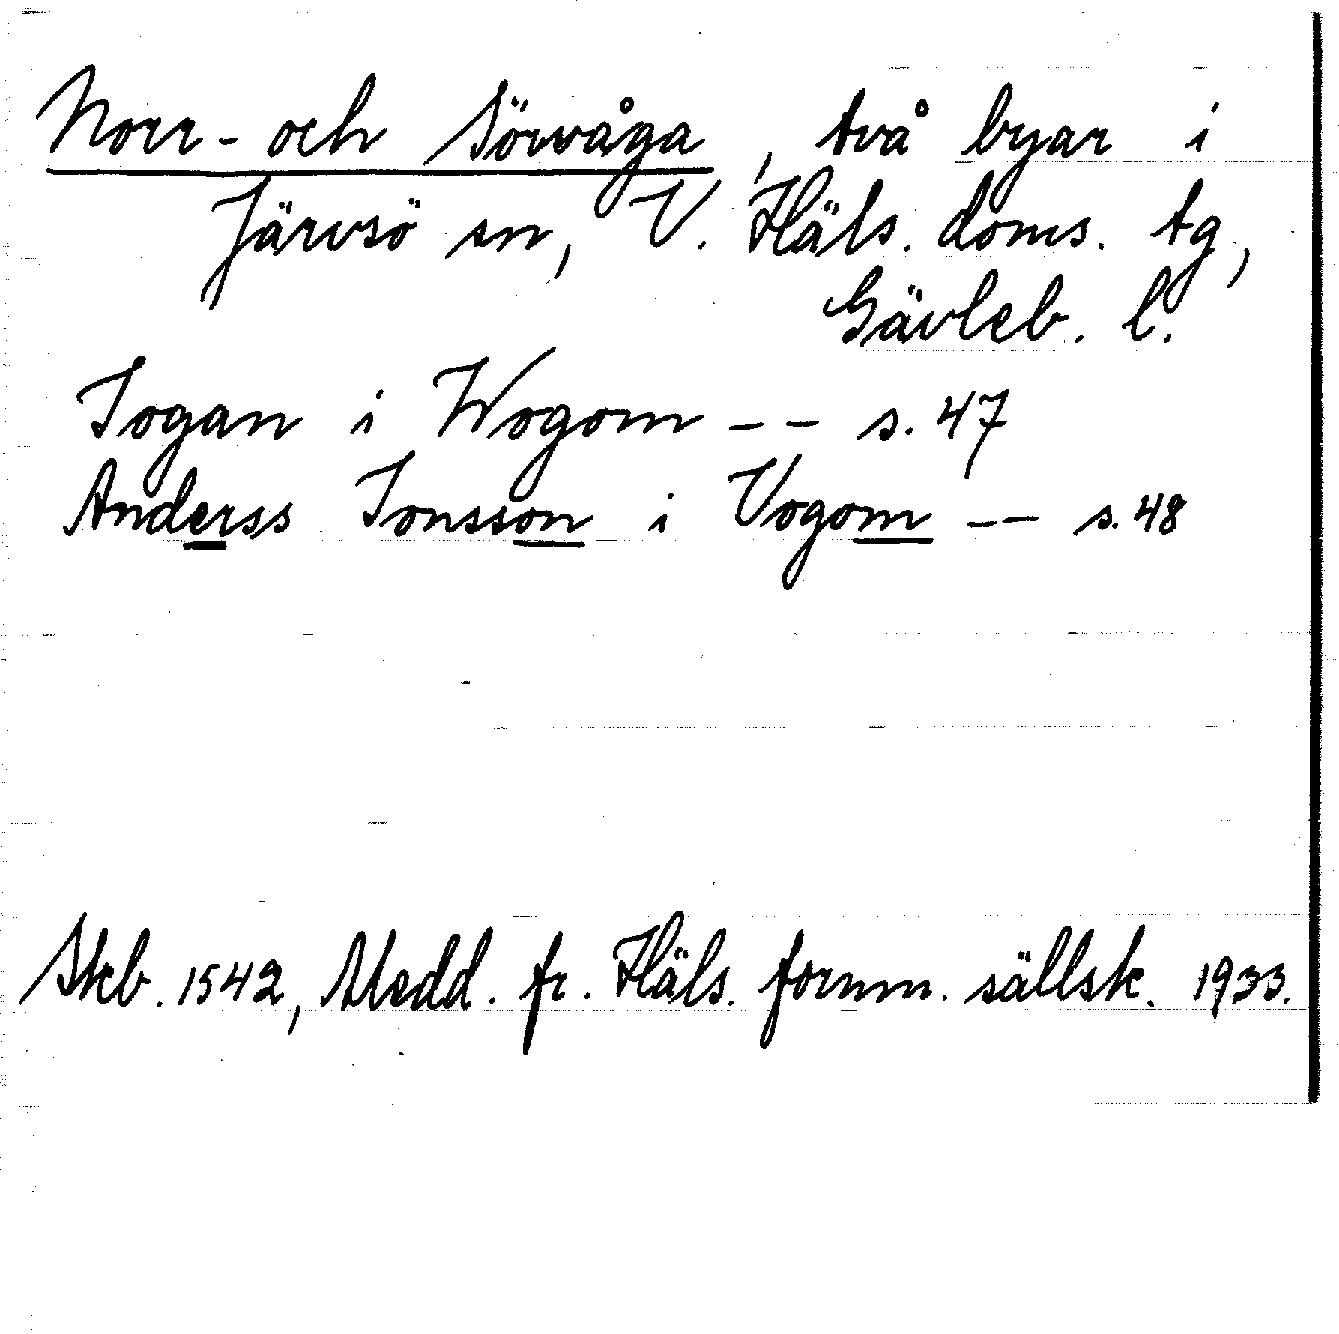 Norr- och Sörvåga, två byar i
Järvsö sn, V. Häls. doms. tg,
Gävleb. l.
Jogan i Wogom -- s. 47
Anderss Jonsson i Vogom -- s. 48
Skb. 1542, Medd. fr. Häls. fornm. sällsk. 1933.